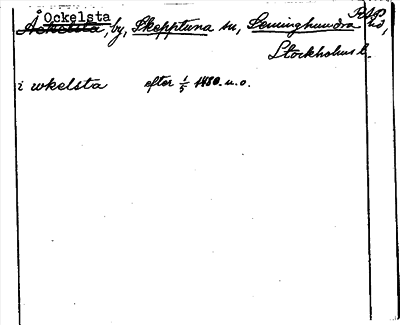 Åockelsta
Åckelsta, by, Skepptuna sn, Seminghundra hd,
Stockholms l.
i wkelsta efter 1/5 1480. u.o.